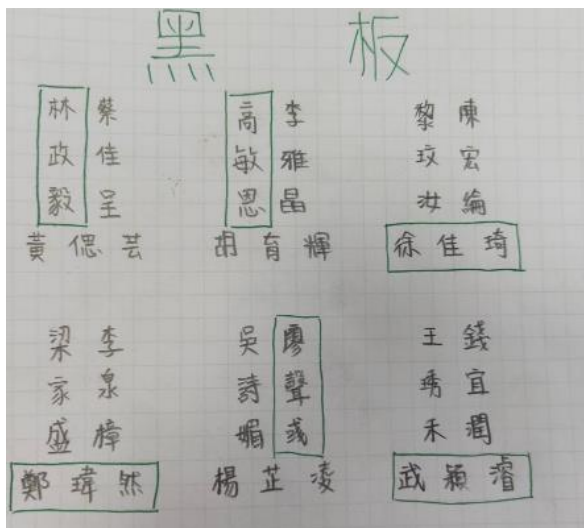 黑板
林政毅
蔡佳呈
黃偲芸
高敏恩
李雅晶
胡育輝
黎玟汝
陳宏綸
徐佳琦
梁家盛
李泉樟
鄭瑋然
吳詩媚
廖聲彧
楊芷凌
王琇禾
錢宜潤
武穎濬